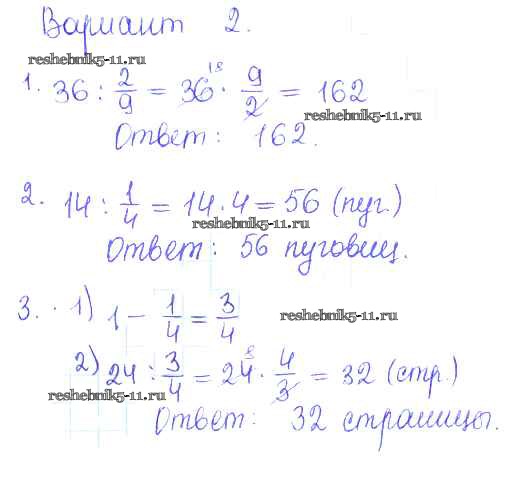 Вариант 2.
reshebnik5-11.ru
1. 36 : 2/9 = 36 18 · 9/2 = 162
reshebnik5-11.ru
Ответ: 162.
2. 14 : 1/4 = 14 · 4 = 56 (пуг.)
reshebnik5-11.ru
Ответ: 56 пуговиц.
3. 1) 1 - 1/4 = 3/4
reshebnik5-11.ru
2) 24 : 3/4 = 24 8 · 4/3 = 32 (стр.)
reshebnik5-11.ru
Ответ: 32 страницы.